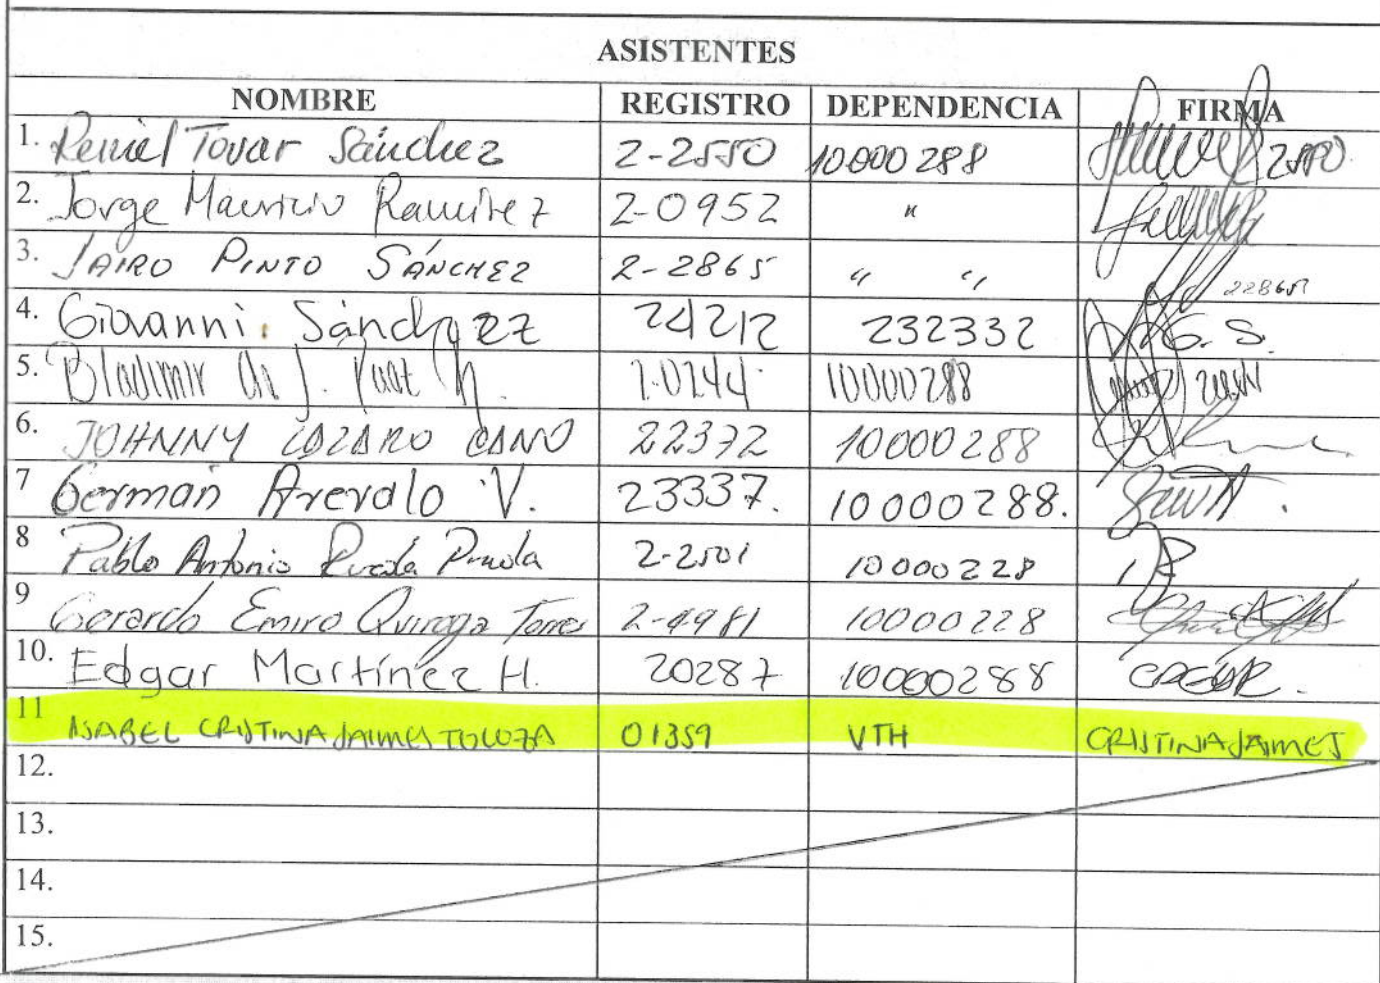 ASISTENTES
NOMBRE REGISTRO DEPENDENCIA FIRMA
1. Reniel Tovar Sánchez 2-2550 10000288 2550
2. Jorge Mauricio Ramírez 2-0952 "
3. JAIRO PINTO SÁNCHEZ 2-2865 " " 22865
4. Giovanni Sánchez 24212 232332 G. S.
5. Bladimir J. 2-0244 10000288
6. JOHNNY LOZANO CANO 22372 10000288
7 German Arevalo V. 23337. 10000288.
8 Pablo Antonio Rueda 2-2501 10000228
9 Gerardo Emiro Quiroga Torres 2-4981 10000228
10. Edgar Martínez H. 20287 10000288 EDGAR.
11 ISABEL CRISTINA JAIMES TOLOZA 01359 VTH CRISTINA JAIMES
12.
13.
14.
15.